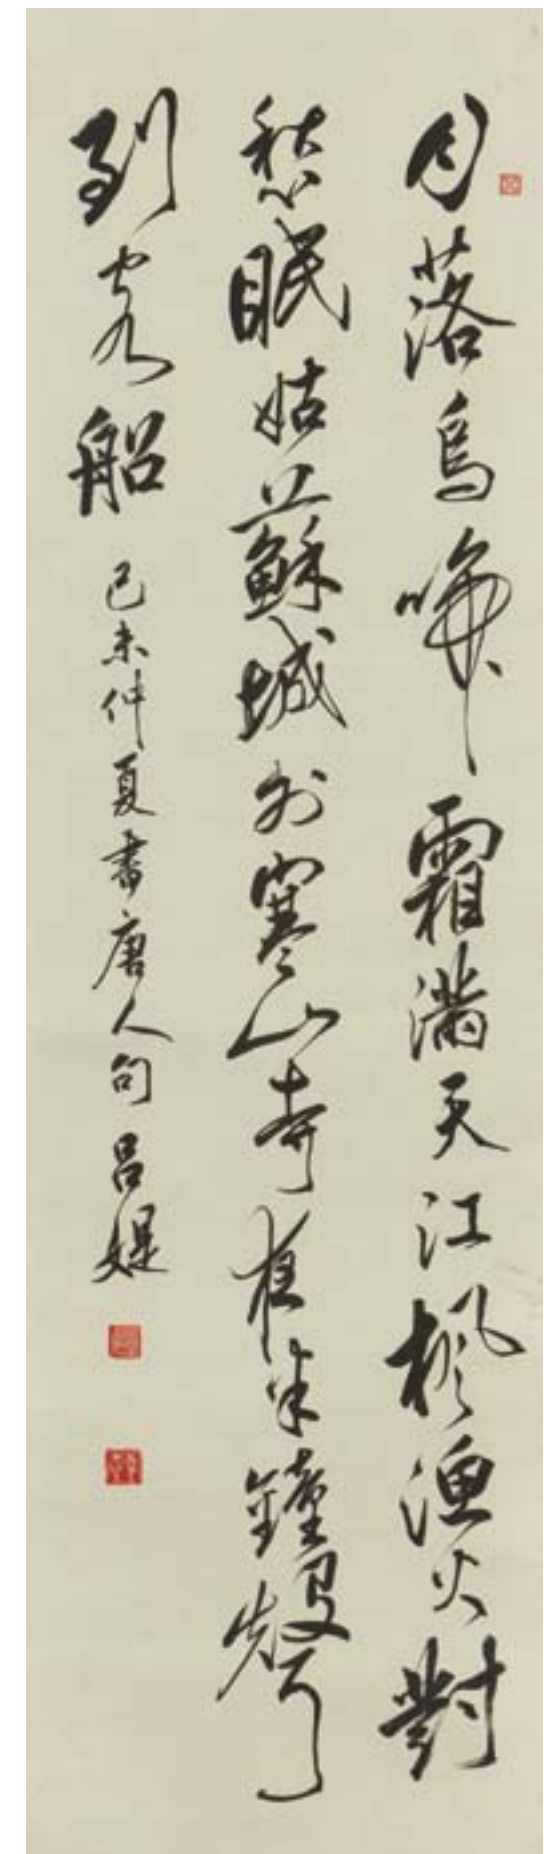 月落烏啼霜滿天江楓漁火對
愁眠姑蘇城外寒山寺夜半鐘聲
到客船 己未仲夏書唐人句 呂媞